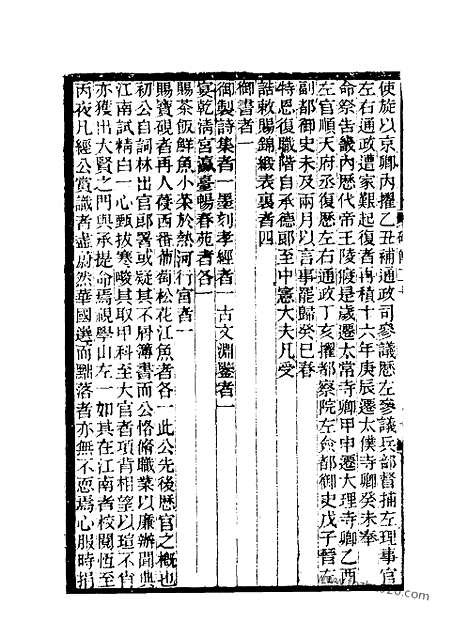 使旋以京卿內擢乙丑補通政司參議歷左參議兵部督捕左理事官
左右通政遭家艱起復者再積十六年庚辰遷太僕寺卿癸未奉
命祭告畿內歷代帝王陵寢是歲遷太常寺卿甲申遷大理寺卿乙酉
左官順天府丞復歷左右通政丁亥擢都察院左僉都御史戊子晉左
副都御史未及兩月以言事罷歸癸巳春
特恩復職階自承德郎至中憲大夫凡受
誥敕賜錦緞表裏者四
御書者一
御製詩集者一墨刻孝經者一古文淵鑒者一
宴乾清宮瀛臺暢春苑者各一
賜茶飯鮮魚小菜於熱河行宮者一
賜寶硯者再人葠西番葡萄松花江魚者各一此公先後歷官之概也
初公自詞林出官郎署或疑其不屑簿書而公恪脩職業以廉辦聞典
江南試精白一心甄拔寒畯其取甲科至大官者項背相望以瑄不肖
亦獲出大賢之門與承提命焉視學山左一如其在江南者校閱恆至
丙夜凡經公賞識者盡蔚然華國選而黜落者亦無不恧焉心服時捐